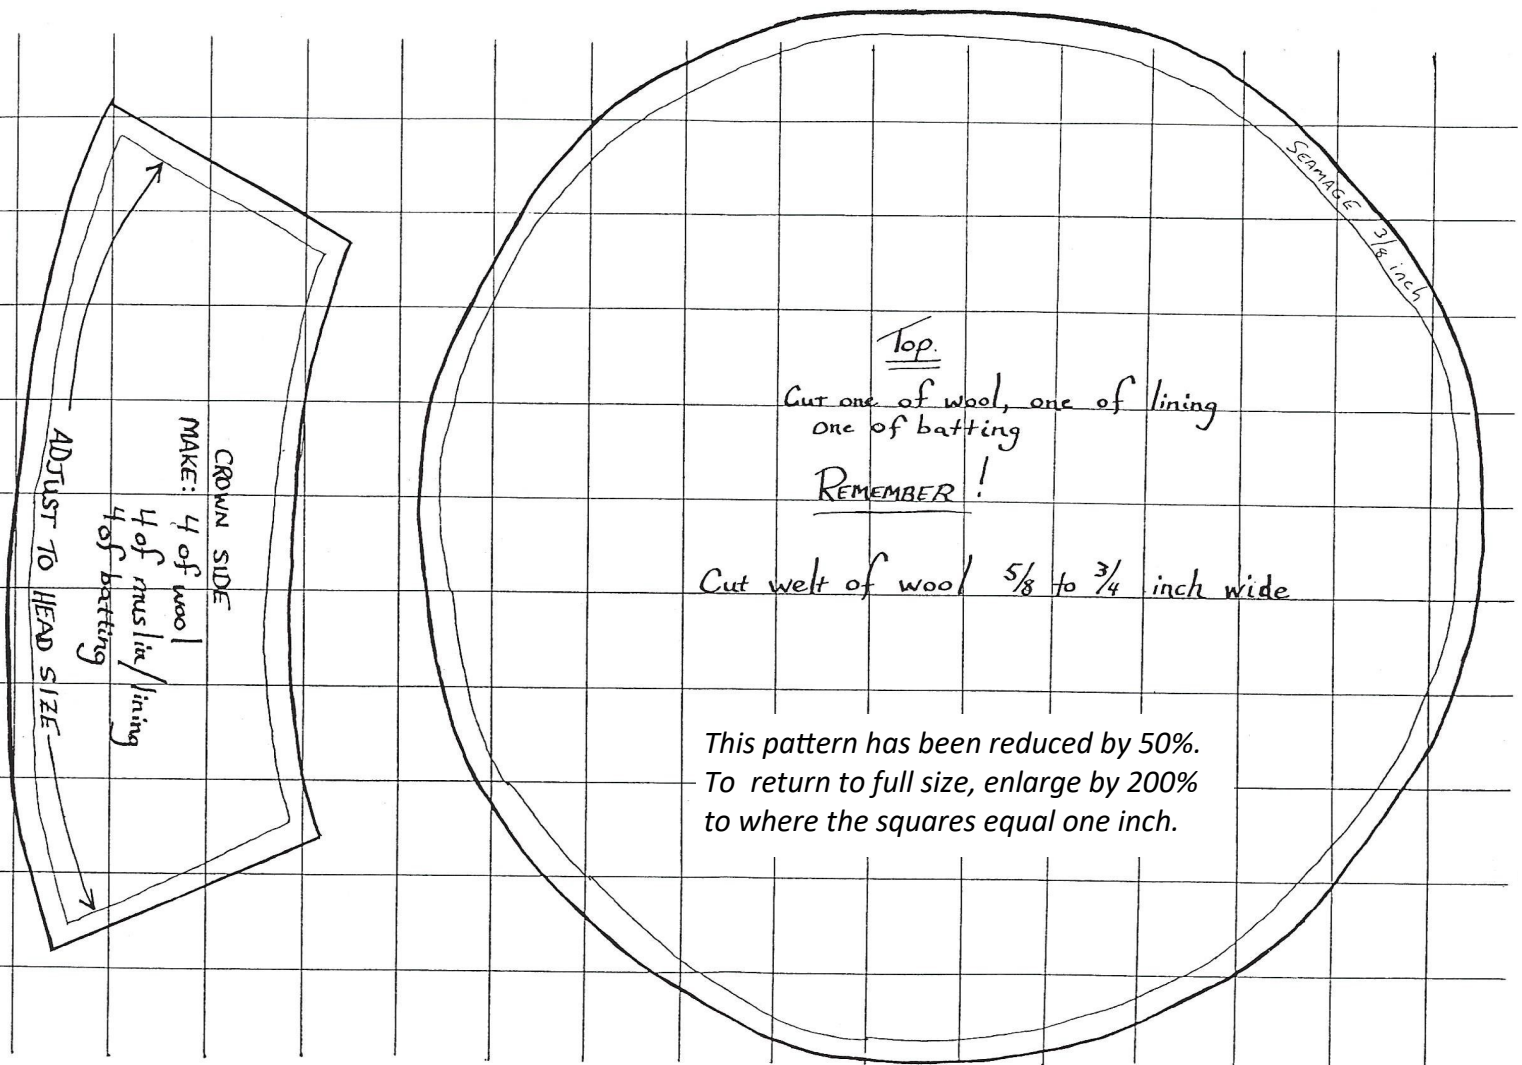 CROWN SIDE
MAKE: 4 of wool
4 of muslin/lining
4 of batting
ADJUST TO HEAD SIZE
SEAMAGE 3/8 inch
Top.
Cut one of wool, one of lining
one of batting
REMEMBER!
Cut welt of wool 5/8 to 3/4 inch wide
This pattern has been reduced by 50%.
To return to full size, enlarge by 200%
to where the squares equal one inch.